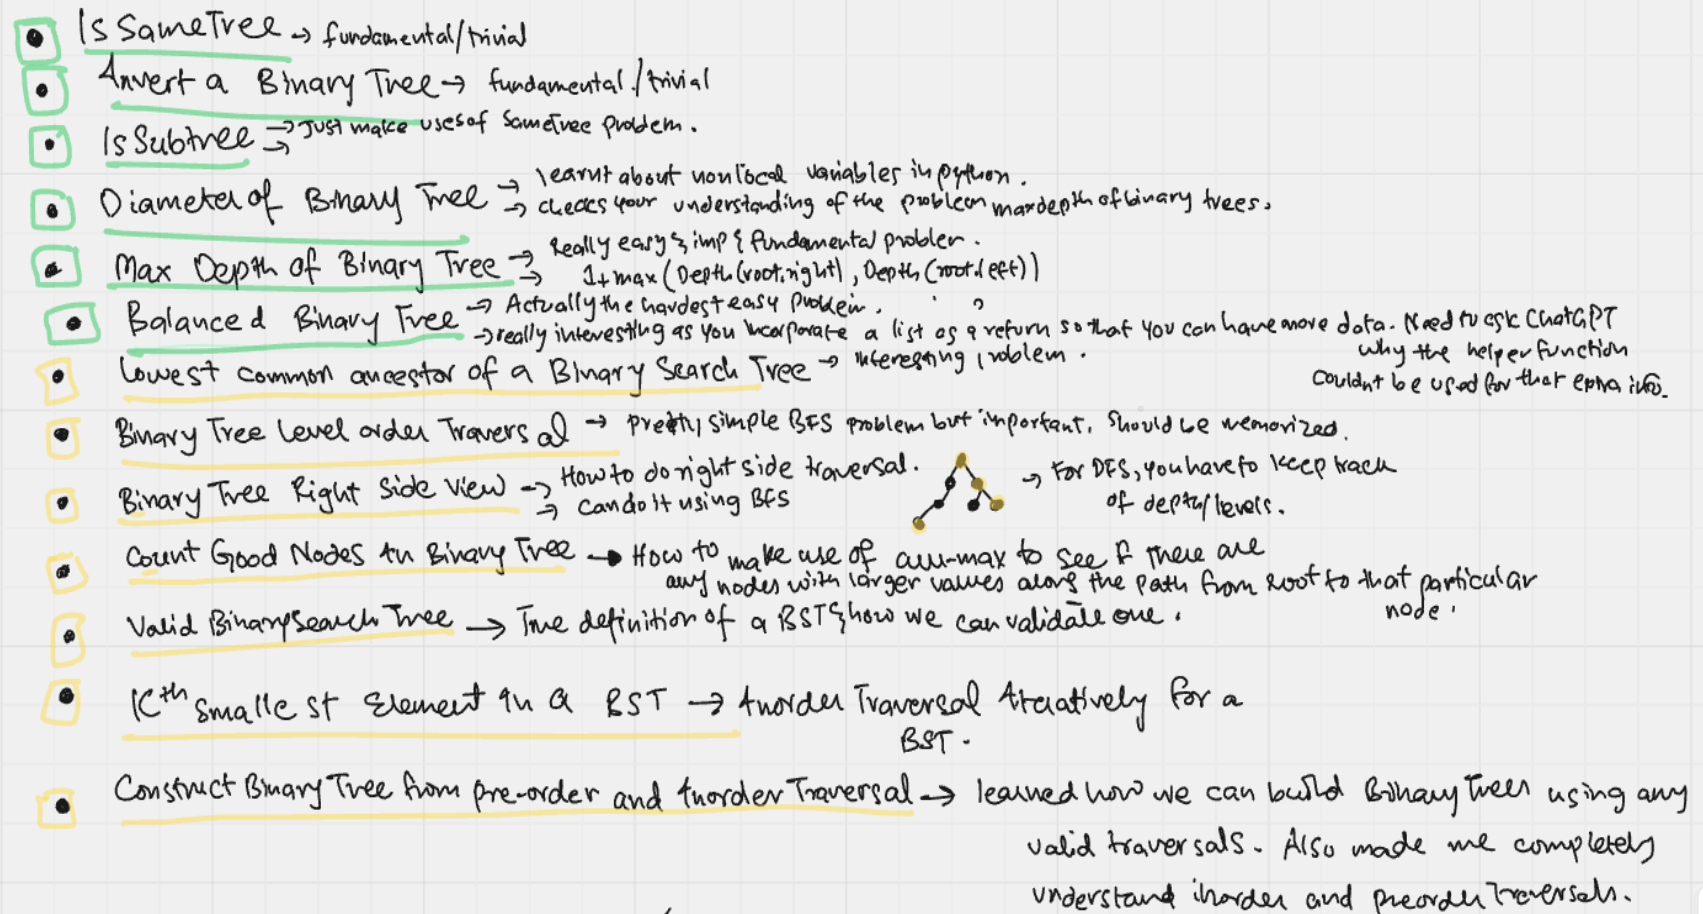 Is SameTree → fundamental/trivial
Invert a Binary Tree → fundamental/trivial
Is Subtree → Just make uses of SameTree problem.
Diameter of Binary Tree → learnt about nonlocal variables in python.
→ checks your understanding of the problem maxdepth of binary trees.
Max Depth of Binary Tree → Really easy & imp & fundamental problem.
→ 1+max(Depth(root.right), Depth(root.left))
Balanced Binary Tree → Actually the hardest easy problem.
→ really interesting as you incorporate a list as a return so that you can have more data. Need to ask ChatGPT
why the helper function
couldnt be used for that extra info.
Lowest common ancestor of a Binary Search Tree → interesting problem.
Binary Tree Level order Traversal → pretty simple BFS problem but important. Should be memorized.
Binary Tree Right Side View → How to do right side traversal.
→ can do it using BFS
→ For DFS, you have to keep track
of depth/levels.
Count Good Nodes in Binary Tree → How to make use of curr-max to see if there are
any nodes with larger values along the path from root to that particular
node.
Valid Binary Search Tree → True definition of a BST & how we can validate one.
Kth smallest Element in a BST → Inorder Traversal Iteratively for a
BST.
Construct Binary Tree from pre-order and Inorder Traversal → learned how we can build Binary Trees using any
valid traversals. Also made me completely
understand inorder and preorder Traversals.